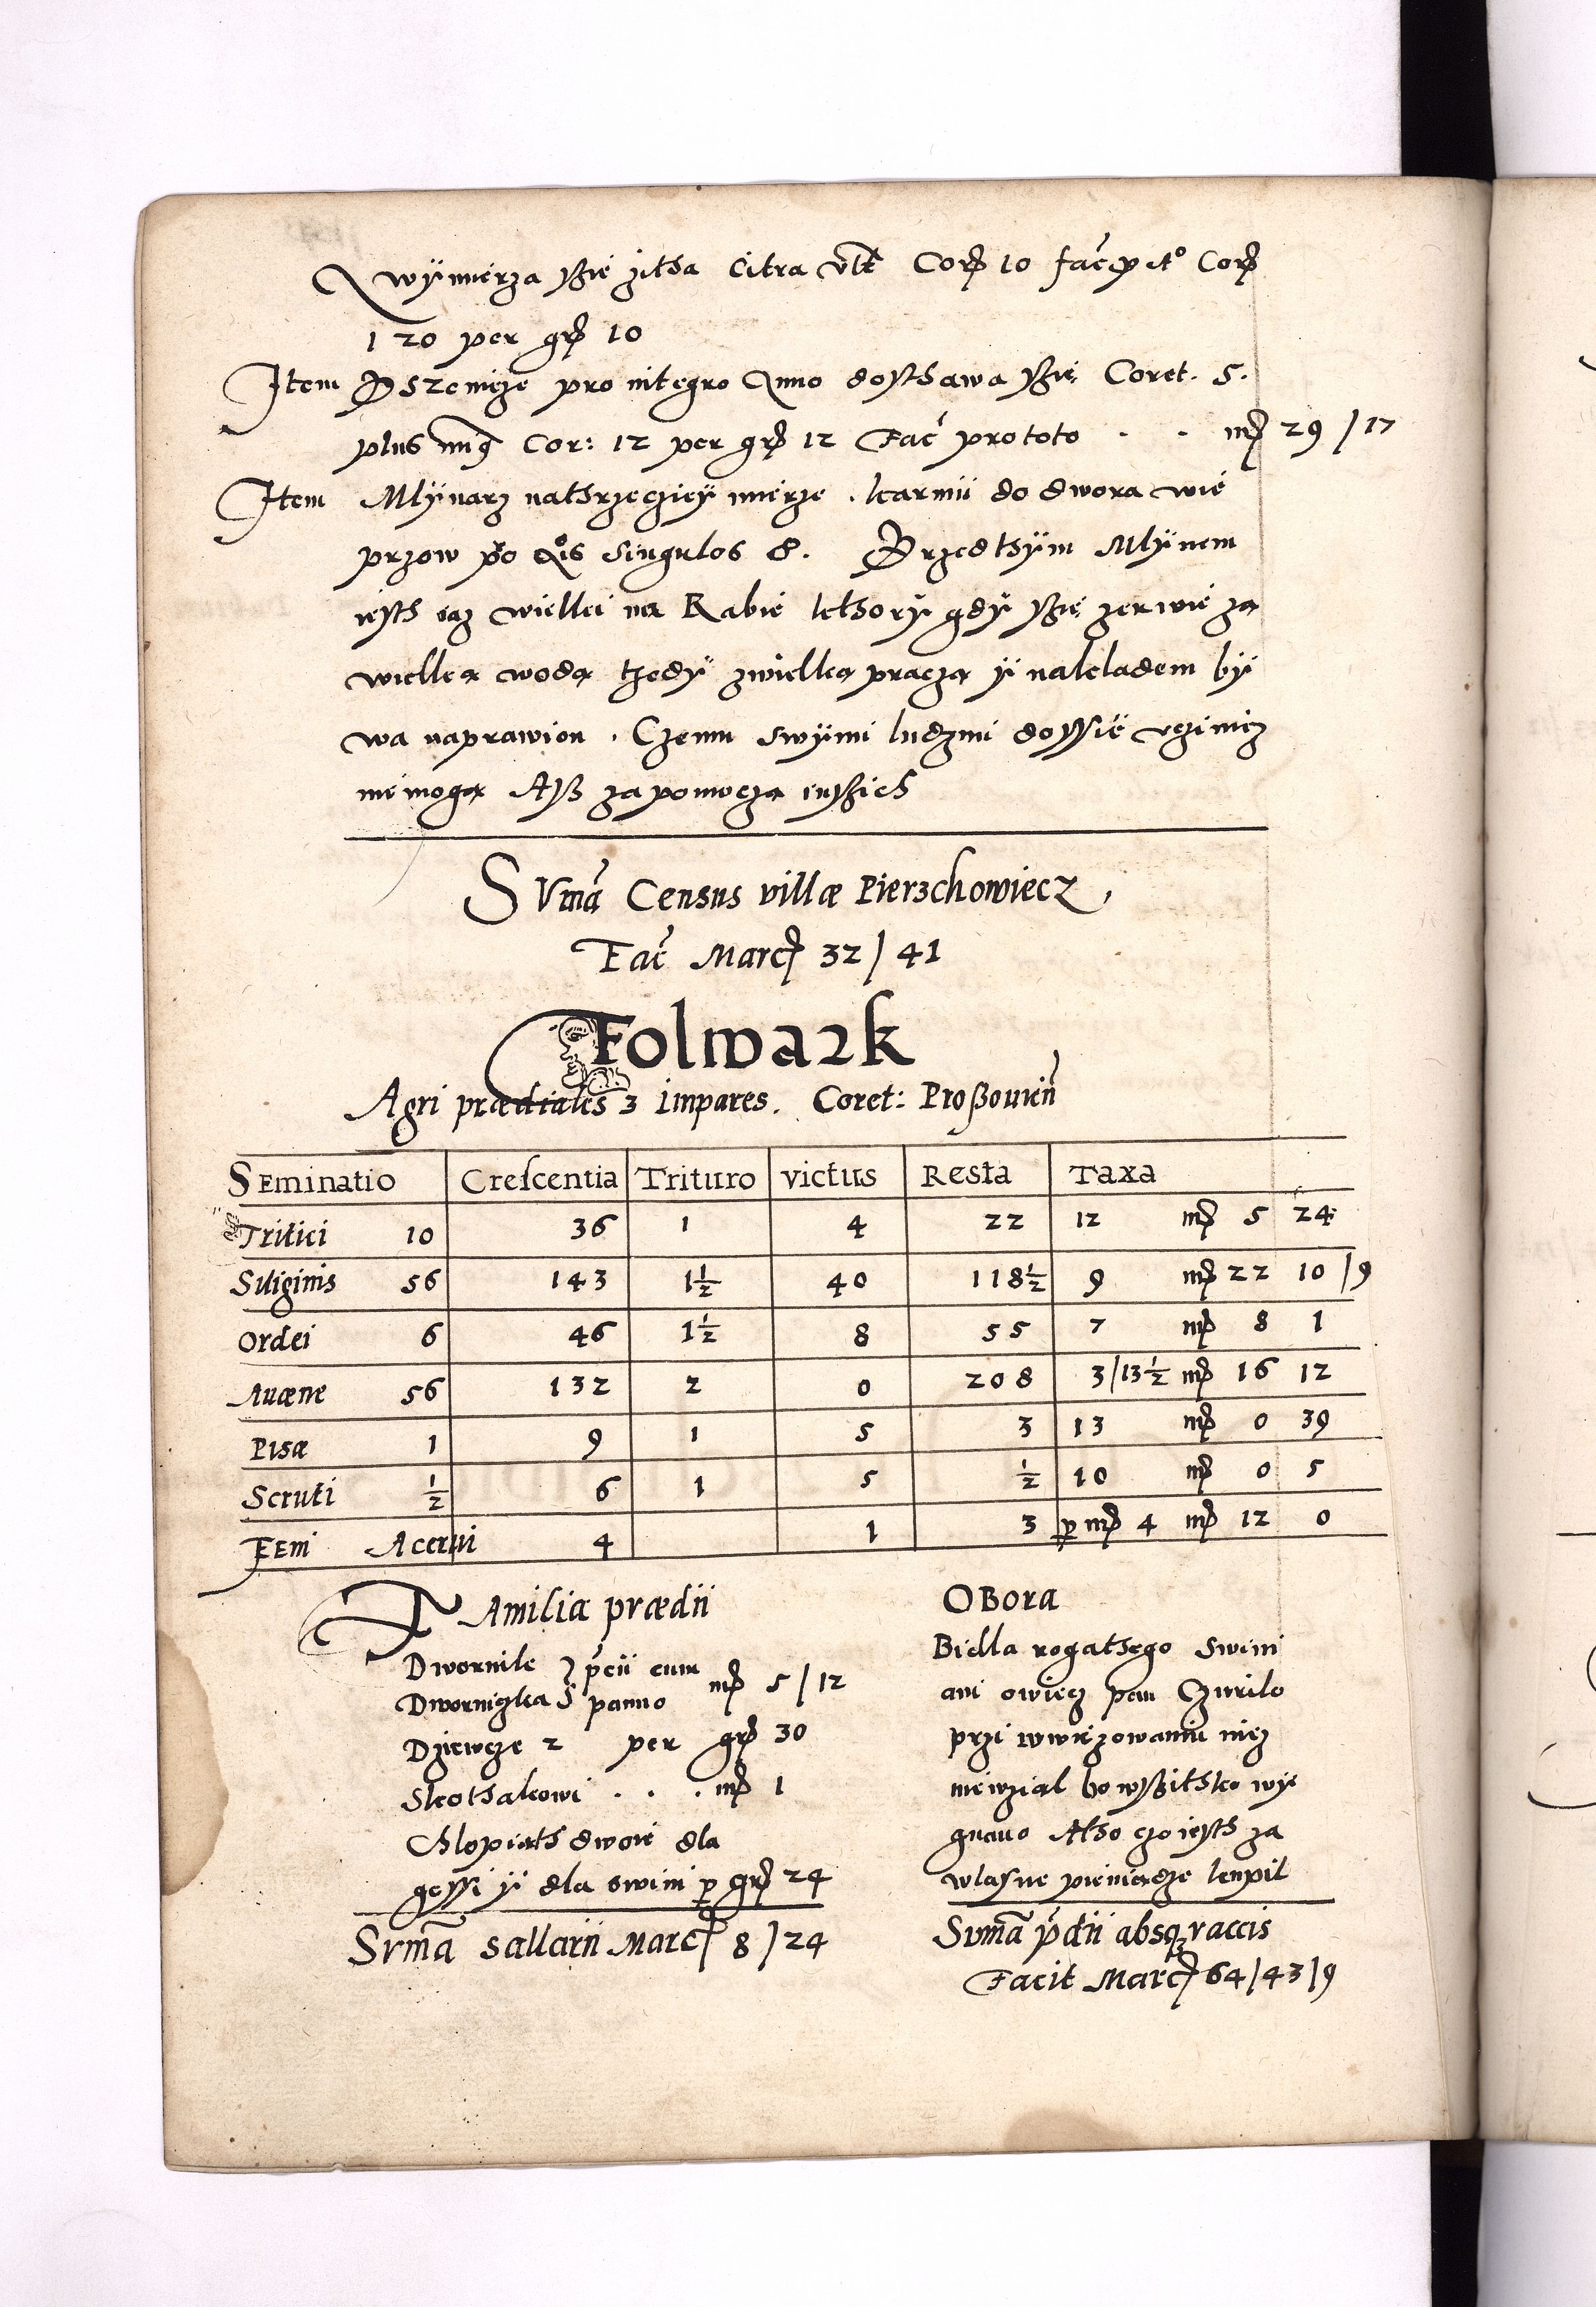 A wymierza ssie zitha Citra vlt Cor 10 fac p to Cor
120 per gr 10
Item Pszenicze pro integro Anno dosthawa ssię Coret. 5.
plus minq Cor: 12 per gr 12 Fac pro toto . . mr 29 / 17
Item Mlynarz nathrzecziey mierze . karmii do dwora wie
przow po qis singulos 8. Przedthym Mlynem
iesth iaz wielki na Rabie kthory gdy ssię zerwie za
wielką wodą tzedy zwielką praczą y nakladem by
wa naprawion . Czemu swymi ludzmi dossië vczinicz
nie mogą Aß za pomoczą inssich
SVma Census villæ Pierzchowiecz,
Fac Marc 32 / 41
Folwark
Agri prædiales 3 Impares. Coret: Proßouien
SEminatio Crescentia Trituro victus Resta Taxa
Tritici 10 36 1 4 22 12 mr 5 24
Siliginis 56 143 1½ 40 118½ 9 mr 22 10 / 9
Ordei 6 46 1½ 8 55 7 mr 8 1
Auæne 56 132 2 0 208 3/13½ mr 16 12
Pisæ 1 9 1 5 3 13 mr 0 39
Scruti ½ 6 1 5 ½ 10 mr 0 5
FEni Acerui 4 1 3 p mr 4 mr 12 0
FAmilia prædii
Dwornik pcii cum
Dworniczka panno mr 5 / 12
Dziewcze 2 per gr 30
Skothakowi . . . mr 1
Chlopiath dwoie dla
gessi y dla swini p gr 24
Svma sallarii Marc 8 / 24
OBora
Bidla rogathego swini
ani owiecz pan Czurilo
przi wwiezowaniu nicz
niewzial bo wssithko wyę
gnano Atho czo iesth za
wlasne pieniądze kupil
Svma pdii absq vaccis
Facit Marc 64/43/9